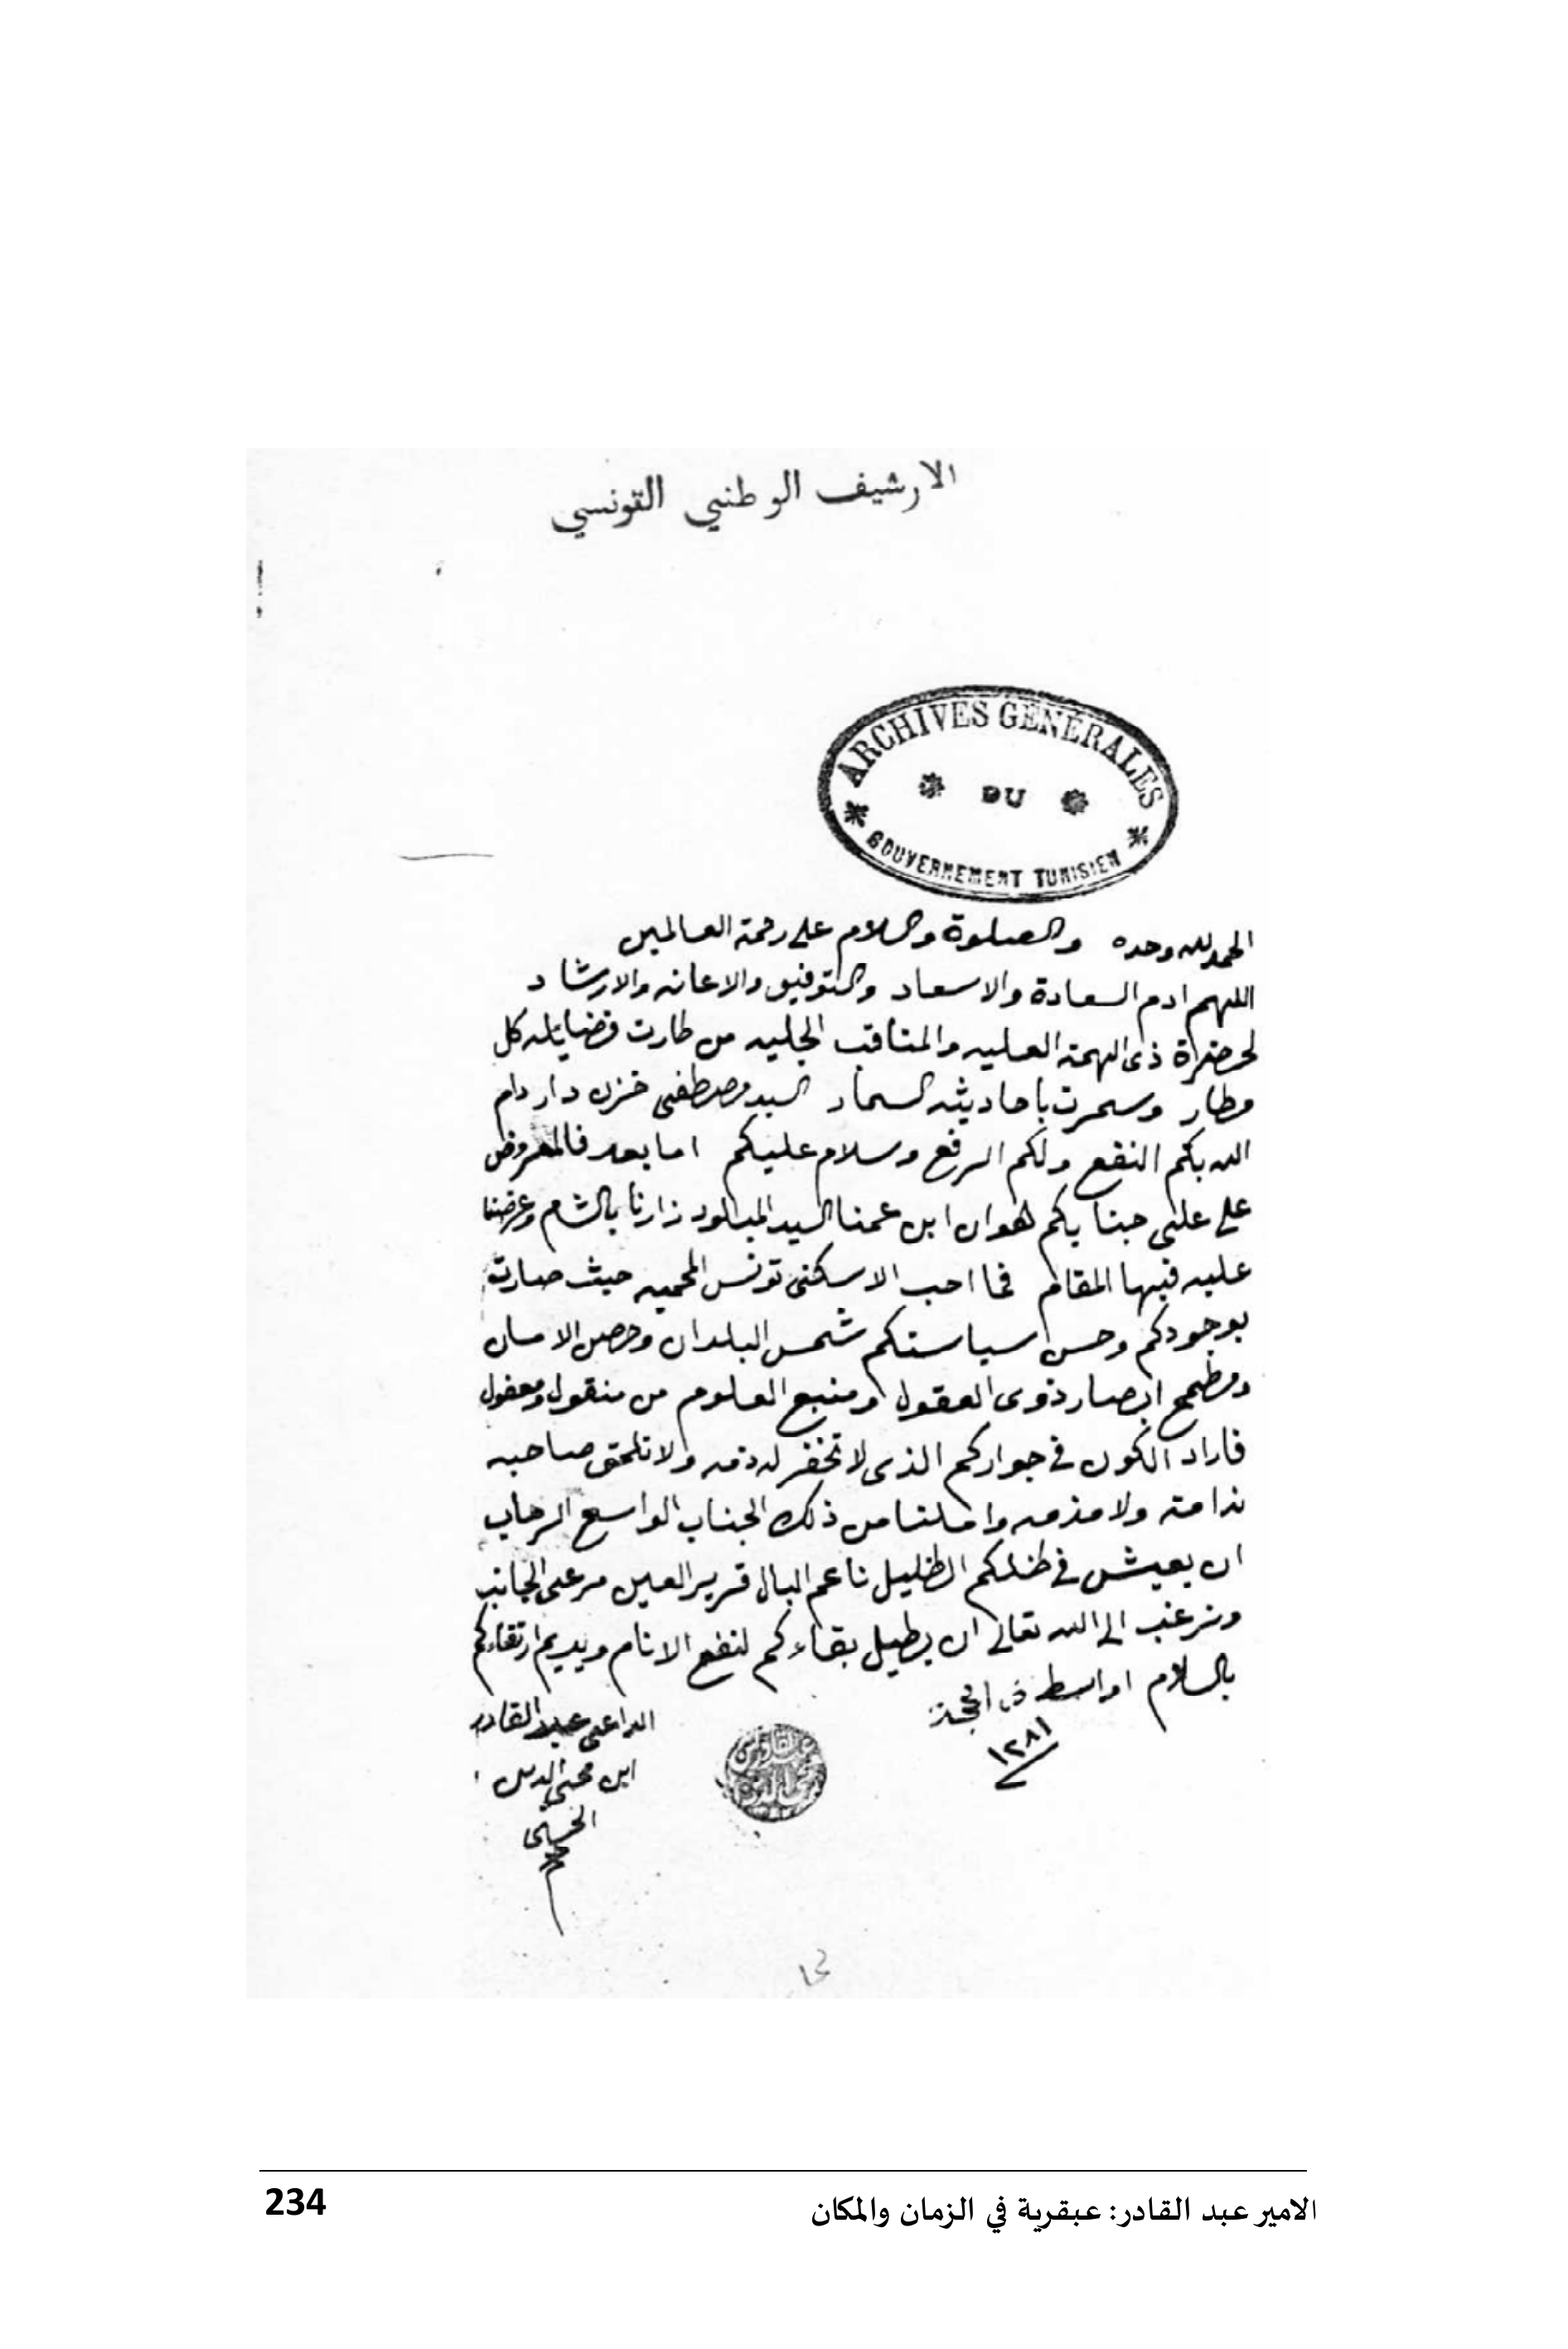 الارشيف الوطني التونسي
ARCHIVES GENERALES
DU
GOUVERNEMENT TUNISIEN
الحمد لله وحده والصلوة والسلام على رحمة العالمين
اللهم ادم السعادة والاسعاد والتوفيق والاعانه والارشاد
لحضرة ذى الهمة العليه والمناقب الجليه من طارت فضايله كل
مطار وسمرت باحاديثه السمار السيد مصطفى خزنه دار دام
الله بكم النفع ولكم الرفع وسلام عليكم اما بعد فالمعروض
على على جنابكم هو ان ابن عمنا السيد الميلود زارنا بالشام وعرضنا
عليه فيها المقام فما احب الا سكنى تونس المحميه حيث صارت
بوجودكم وحسن سياستكم شمس البلدان وحصن الامان
ومطمح ابصار ذوى العقول ومنبع العلوم من منقول ومعقول
فاراد الكون في جواركم الذى لا تخفر له ذمه ولا تلحق صاحبه
ندامة ولا مذمه واملنا من ذلك الجناب الواسع الرحاب
ان يعيش في ظلكم الظليل ناعم البال قرير العين مرعى الجانب
ونرغب الى الله تعالى ان يطيل بقاءكم لنفع الانام ويديم ارتقاءكم
بالسلام اواسط ذى الحجة
١٢٨١
الداعى عبد القادر
ابن محيى الدين
الحسنى
234
الامير عبد القادر: عبقرية في الزمان والمكان